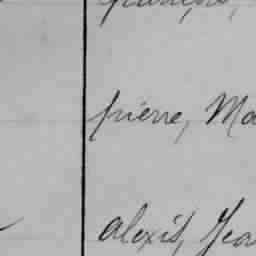 pierre, Ma
alexis, Jea